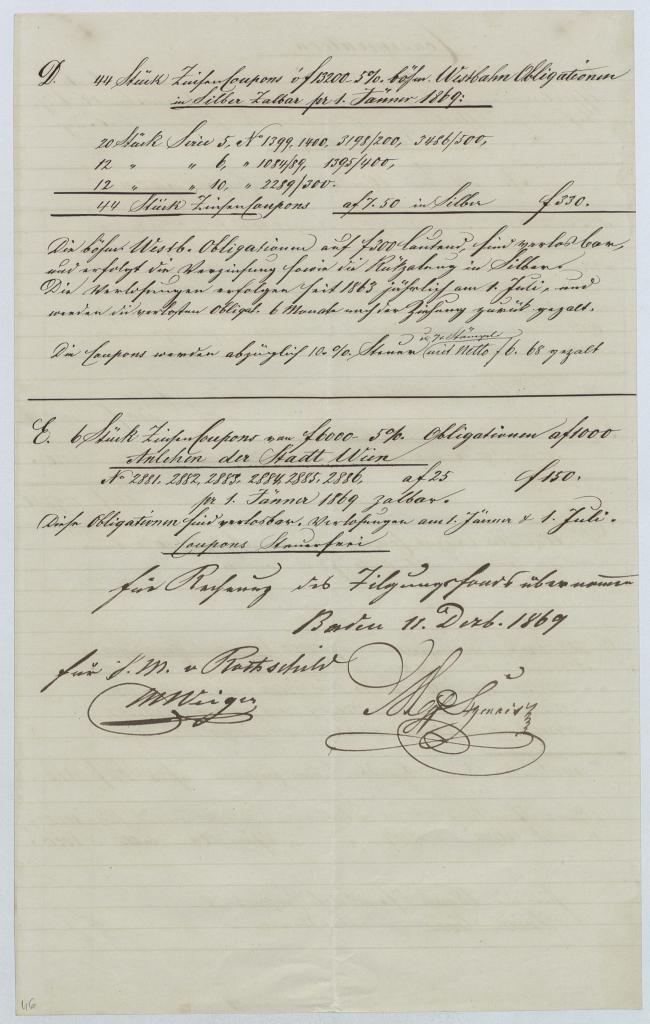 D. 44 Stück Zinsen Coupons v f 13200 - 5% böhm. Westbahn Obligationen
in Silber Zalbar pr 1. Jänner 1869:
20 Stück Serie 5, No 1399, 1400, 3198/200, 3486/500,
12 " " 6, " 1084/89, 1395/400,
12 " " 10, " 2289/300.
44 Stück Zinsen Coupons a f 7.50 in Silber f 330.
Die böhm Westb. Obligationen auf f 300 lautend, sind verlosbar,
und erfolgt die Verzinsung sowie die Rükzalung in Silber.
Die Verlosungen erfolgen seit 1863 jährlich am 1. Juli, und
werden die verlosten Obligat. 6 Monate nach der Ziehung zurük gezalt.
Die Coupons werden abzüglich 10% Steuer u. Stämpel mit Netto f 6.68 gezalt
E. 6 Stück Zinsen Coupons von f 6000 - 5% Obligationen a f 1000
Anlehen der Stadt Wien
No 2881, 2882, 2883, 2884, 2885, 2886, a f 25 f 150.
pr 1. Jänner 1869 zalbar.
Diese Obligationen sind verlosbar. Verlosungen am 1. Jänner & 1. Juli.
Coupons Steuerfrei
für Rechnung des Tilgungsfonds übernommen
Baden 11. Dezb. 1869
für S. M. v Rothschild
46